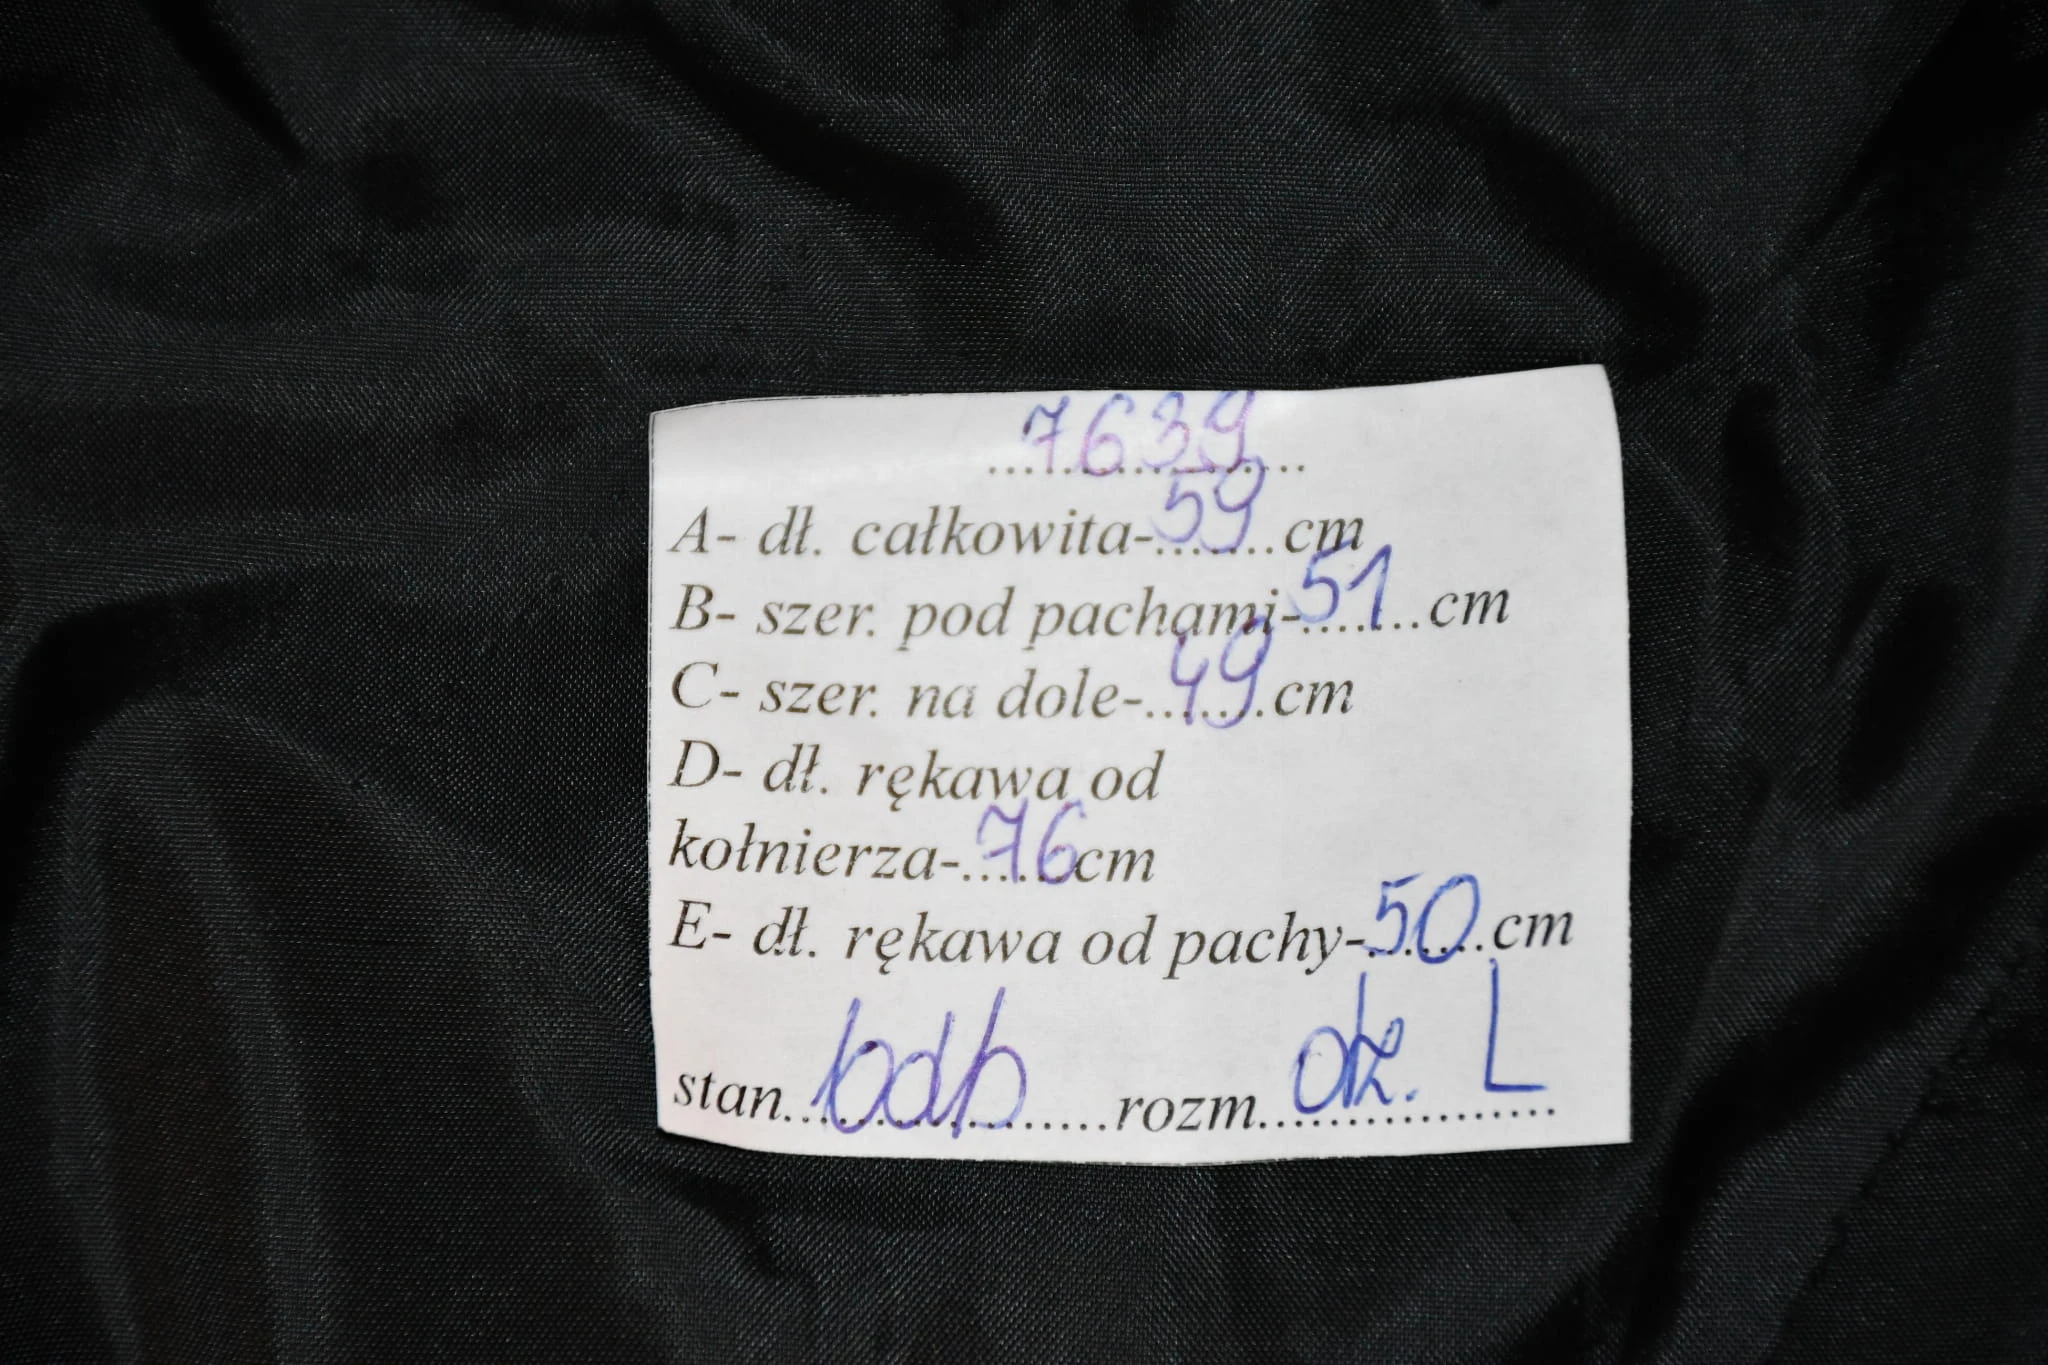 7639
A- dł. całkowita-59cm
B- szer. pod pachami-51cm
C- szer. na dole-49cm
D- dł. rękawa od
kołnierza-76cm
E- dł. rękawa od pachy-50cm
stan bdb rozm. ok. L